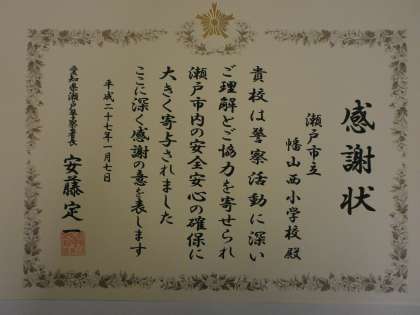 感謝状
瀬戸市立
幡山西小学校殿
貴校は警察活動に深い
ご理解とご協力を寄せられ
瀬戸市内の安全安心の確保に
大きく寄与されました
ここに深く感謝の意を表します
平成二十七年一月七日
愛知県瀬戸警察署長
安藤定一